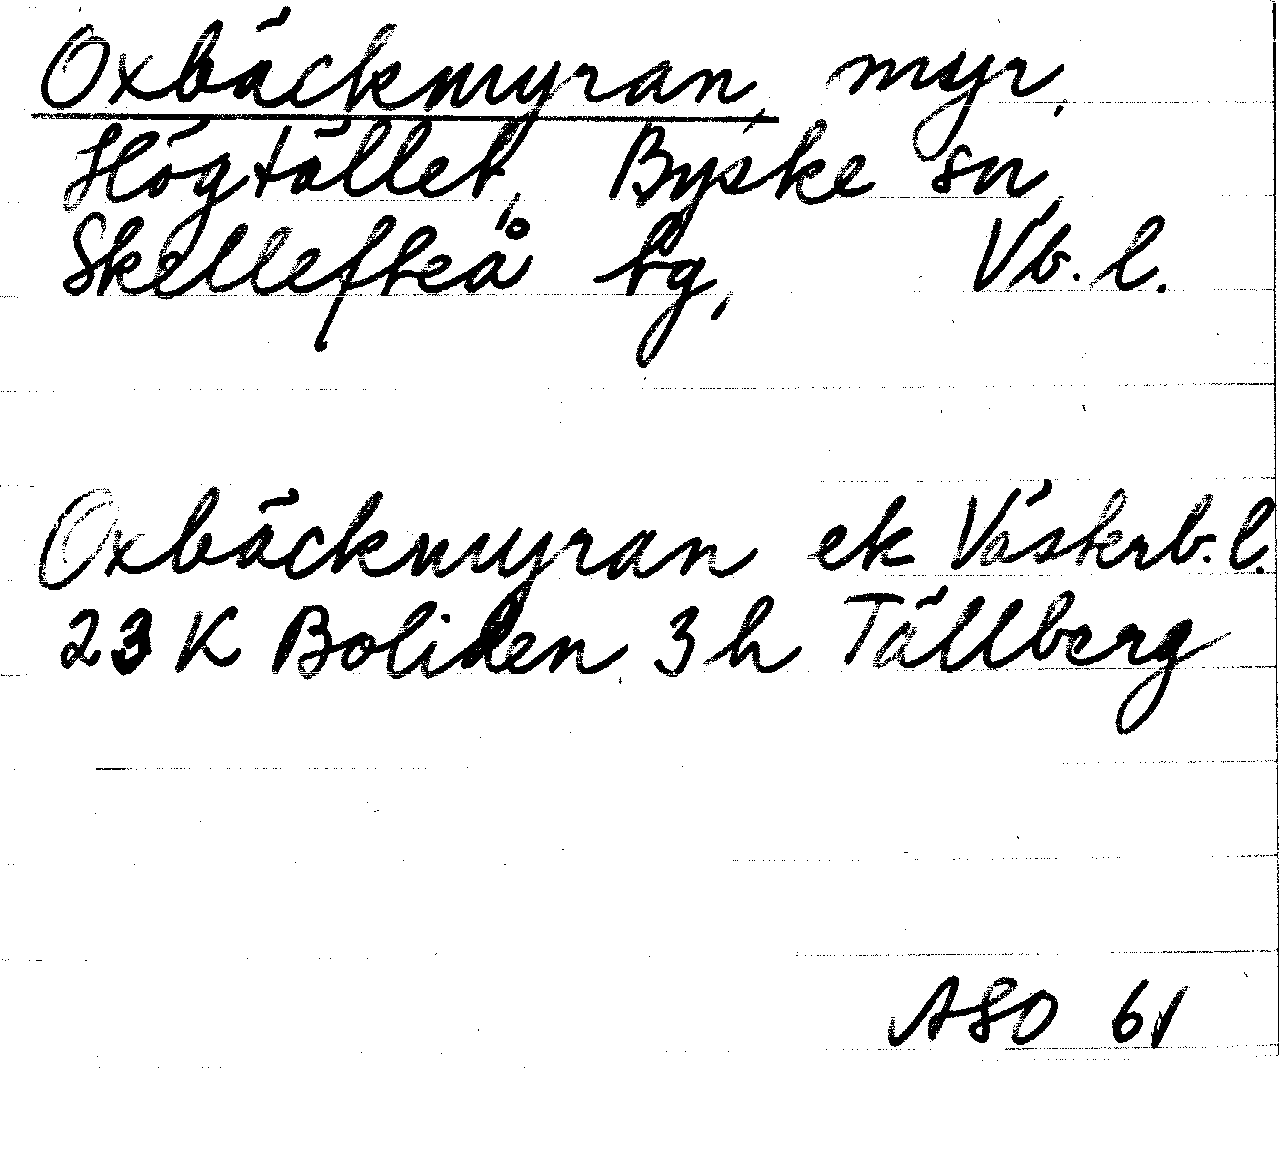 Oxbäckmyran, myr,
Högtället, Byske sn,
Skellefteå tg, Vb. l.
Oxbäckmyran ek Västerb. l.
23 K Boliden 3 h Tällberg
ASO 61